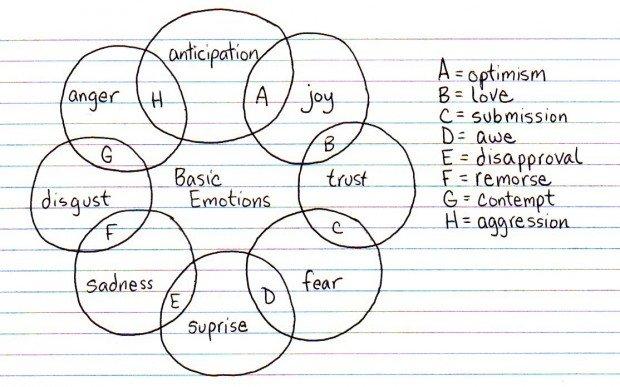 anticipation
anger
H
A
joy
B
G
disgust
Basic
Emotions
trust
C
F
sadness
E
suprise
D
fear
A = optimism
B = love
C = submission
D = awe
E = disapproval
F = remorse
G = contempt
H = aggression